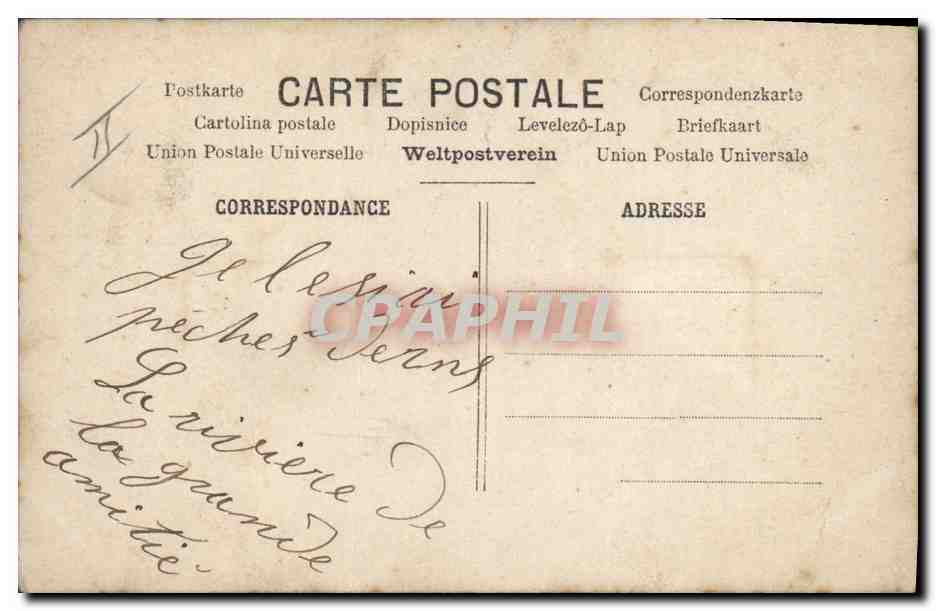 Postkarte CARTE POSTALE Correspondenzkarte
Cartolina postale Dopisnice Levelezô-Lap Briefkaart
Union Postale Universelle Weltpostverein Union Postale Universale
II
CORRESPONDANCE
ADRESSE
Je les ai
CPAPHIL
péches Dens
La riviere de
la grande
amitié